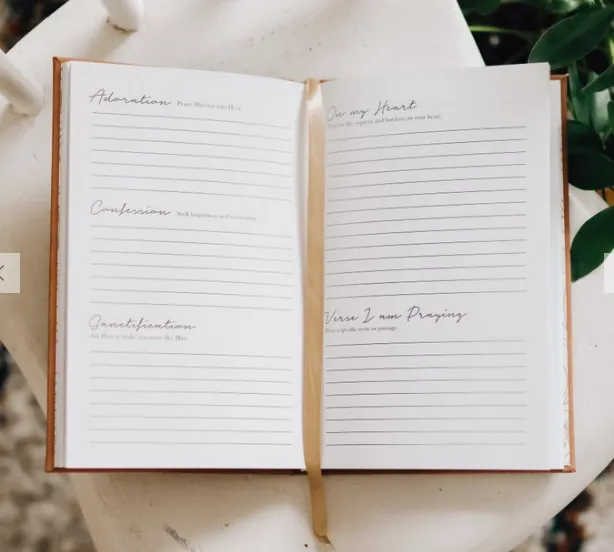 Adoration Praise Him for who He is.
Confession Seek forgiveness and
Sanctification
Ask Him to make you more like Him.
On my Heart
the requests and burdens on your heart.
Verse I am Praying
Pray a specific verse or passage.